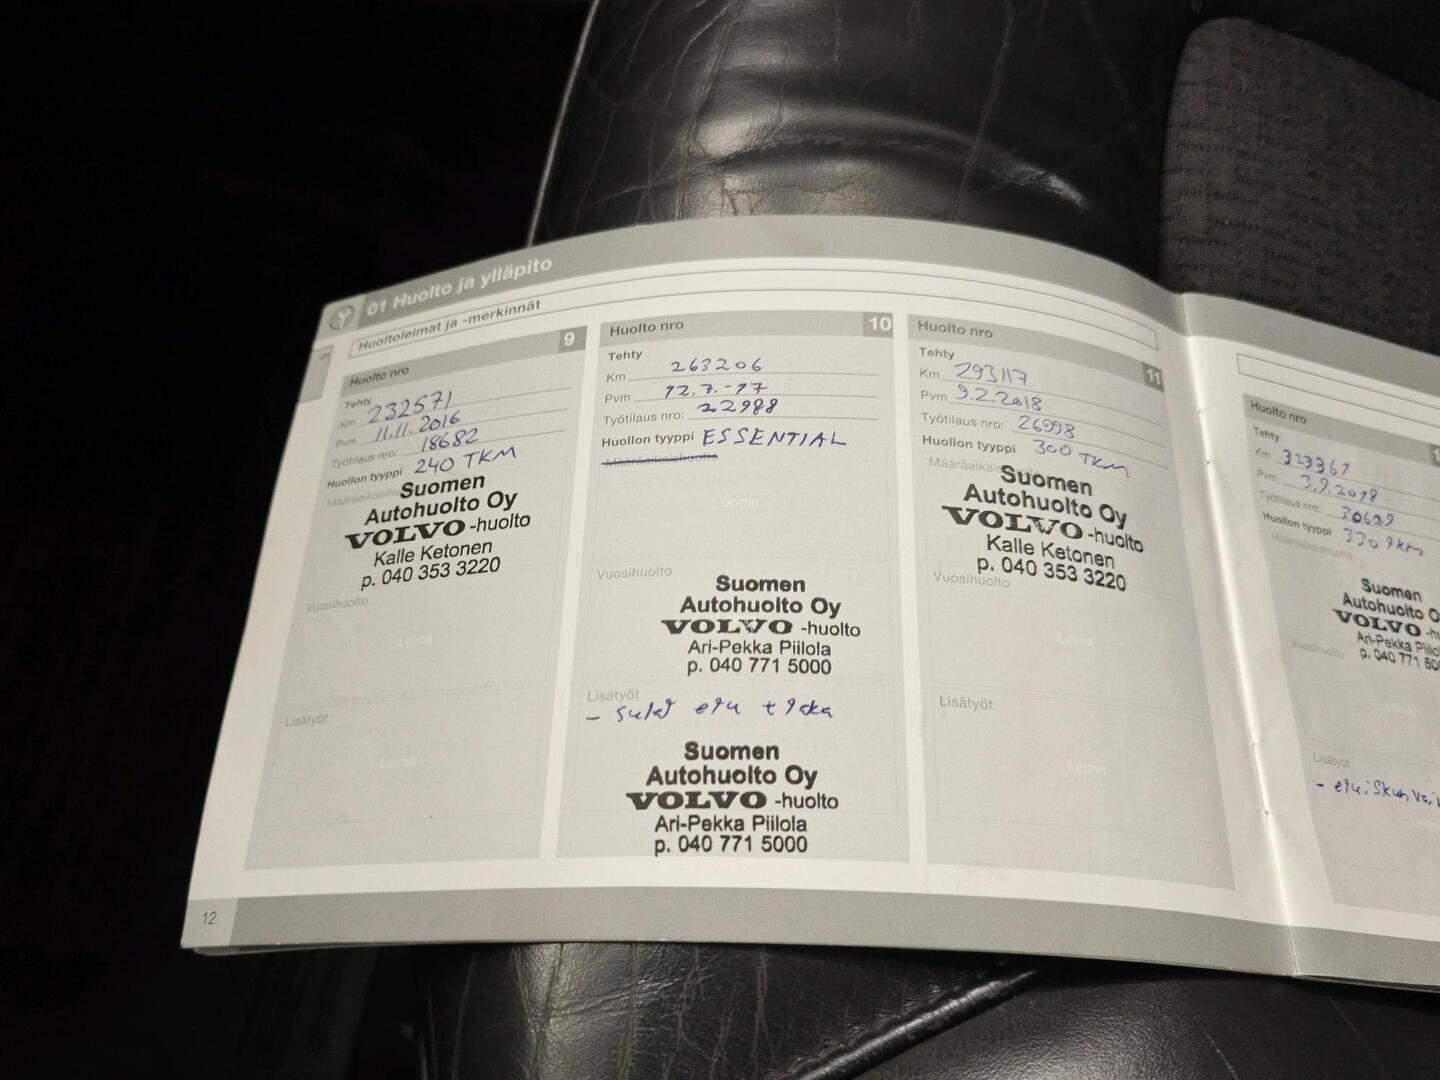 01 Huolto ja ylläpito
Huoltoleimat ja -merkinnät
Huolto nro 9
Tehty
Km 232571
Pvm 11.11.2016
Työtilaus nro: 18682
Huollon tyyppi 240 TKM
Määräaikaishu
Suomen
Autohuolto Oy
VOLVO -huolto
Kalle Ketonen
p. 040 353 3220
Vuosihuolto
Leima
Lisätyöt
Leima
12
Huolto nro 10
Tehty
Km 263206
Pvm 12.7.-17
Työtilaus nro: 22988
Huollon tyyppi ESSENTIAL
Määräaikaishuolto
Leima
Vuosihuolto
Suomen
Autohuolto Oy
VOLVO -huolto
Ari-Pekka Piilola
p. 040 771 5000
Lisätyöt
Suomen
Autohuolto Oy
VOLVO -huolto
Ari-Pekka Piilola
p. 040 771 5000
Huolto nro 11
Tehty
Km 293117
Pvm 9.2.2018
Työtilaus nro: 26998
Huollon tyyppi 300 TKM
Määräaikais
Suomen
Autohuolto Oy
VOLVO -huolto
Kalle Ketonen
p. 040 353 3220
Vuosihuolto
Leima
Lisätyöt
Leima
Huolto nro
Tehty
Km 323367
Pvm 3.9.2018
Työtilaus nro: 30629
Huollon tyyppi 330
Määräaikaishuolto
Suomen
Autohuolto O
VOLVO -hu
Ari-Pekka Piilo
p. 040 771 50
Vuosihuolto
Lisätyöt